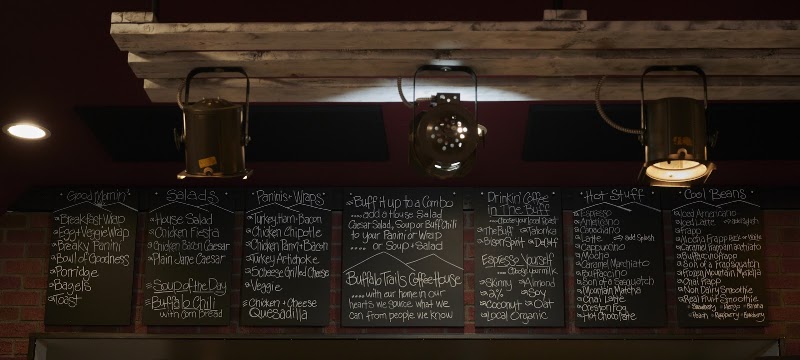 Good Mornin'
Breakfast Wrap
Egg + Veggie Wrap
Breaky Panini
Bowl of Goodness
Porridge
Bagels
Toast
Salads
House Salad
Chicken Fiesta
Chicken Bacon Caesar
Plain Jane Caesar
Soup of the Day
Buffalo Chili
with Corn Bread
Paninis + Wraps
Turkey, Ham + Bacon
Chicken Chipotle
Chicken Parm + Bacon
Turkey Artichoke
5 Cheese Grilled Cheese
Veggie
Chicken + Cheese
Quesadilla
Buff it up to a Combo
.... add a House Salad
Caesar Salad, Soup or Buff Chili
to your Panini or Wrap
.... or Soup + Salad
Buffalo Trails Coffee House
.... with our home in our
hearts we source what we
can from people we know
Drinkin' Coffee
in The Buff
The Buff Tatonka
Bison Spirit Decaff
Espresso Yourself
Skinny Almond
2% Soy
Coconut Oat
Local Organic
Hot Stuff
Espresso
Americano
Canadiano
Latte add Splash
Cappuccino
Mocha
Caramel Marchiato
Buffaccino
Son of a Sasquatch
Mountain Matcha
Chai Latte
Creston Fog
Hot Chocolate
Cool Beans
Iced Americano
Iced Latte add Splash
Frapp
Mocha Frapp Dark or White
Caramel Marchiato
Buffaccino Frapp
Son of a Frapsquatch
Frozen Mountain Matcha
Chai Frapp
Non Dairy Smoothie
Real Fruit Smoothie
Strawberry Mango Banana
Peach Raspberry Blueberry